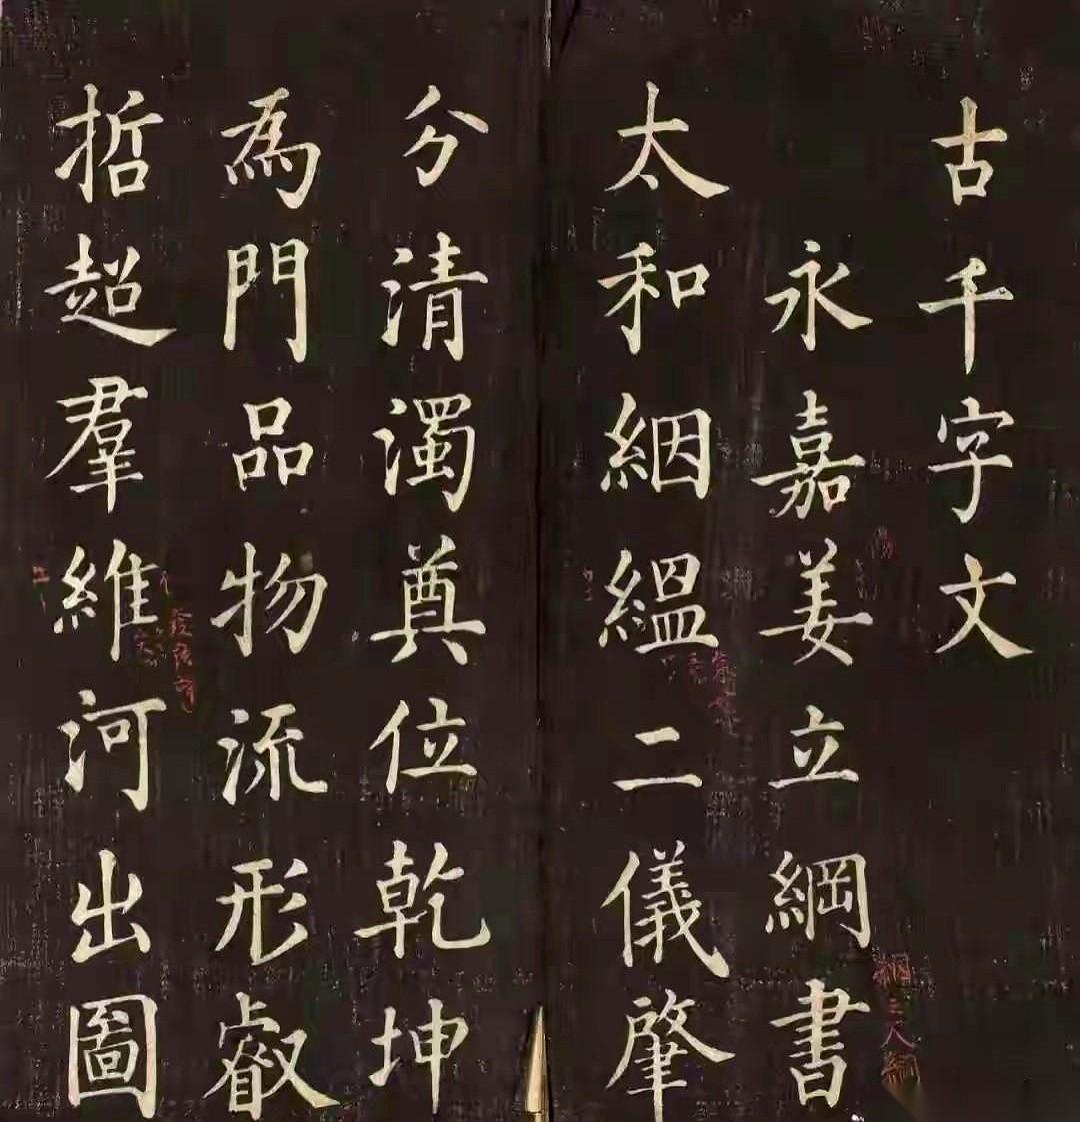 古千字文
永嘉姜立綱書
太和絪縕二儀肇
分清濁奠位乾坤
為門品物流形叡
哲超羣維河出圖